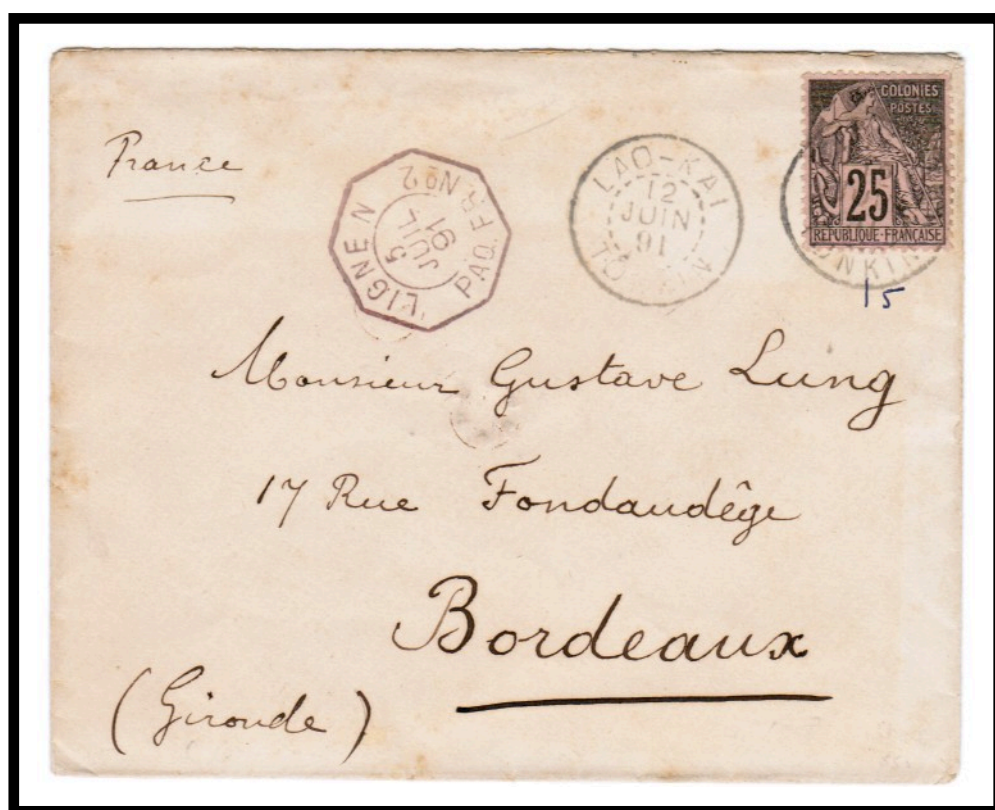 France
LIGNE N
PAQ. FR. Nº 2
5
JUIL
91
LAO-KAI
12
JUIN
91
COLONIES
POSTES
25
REPUBLIQUE FRANÇAISE
15
Monsieur Gustave Lung
17 Rue Fondaudêge
Bordeaux
(Gironde)